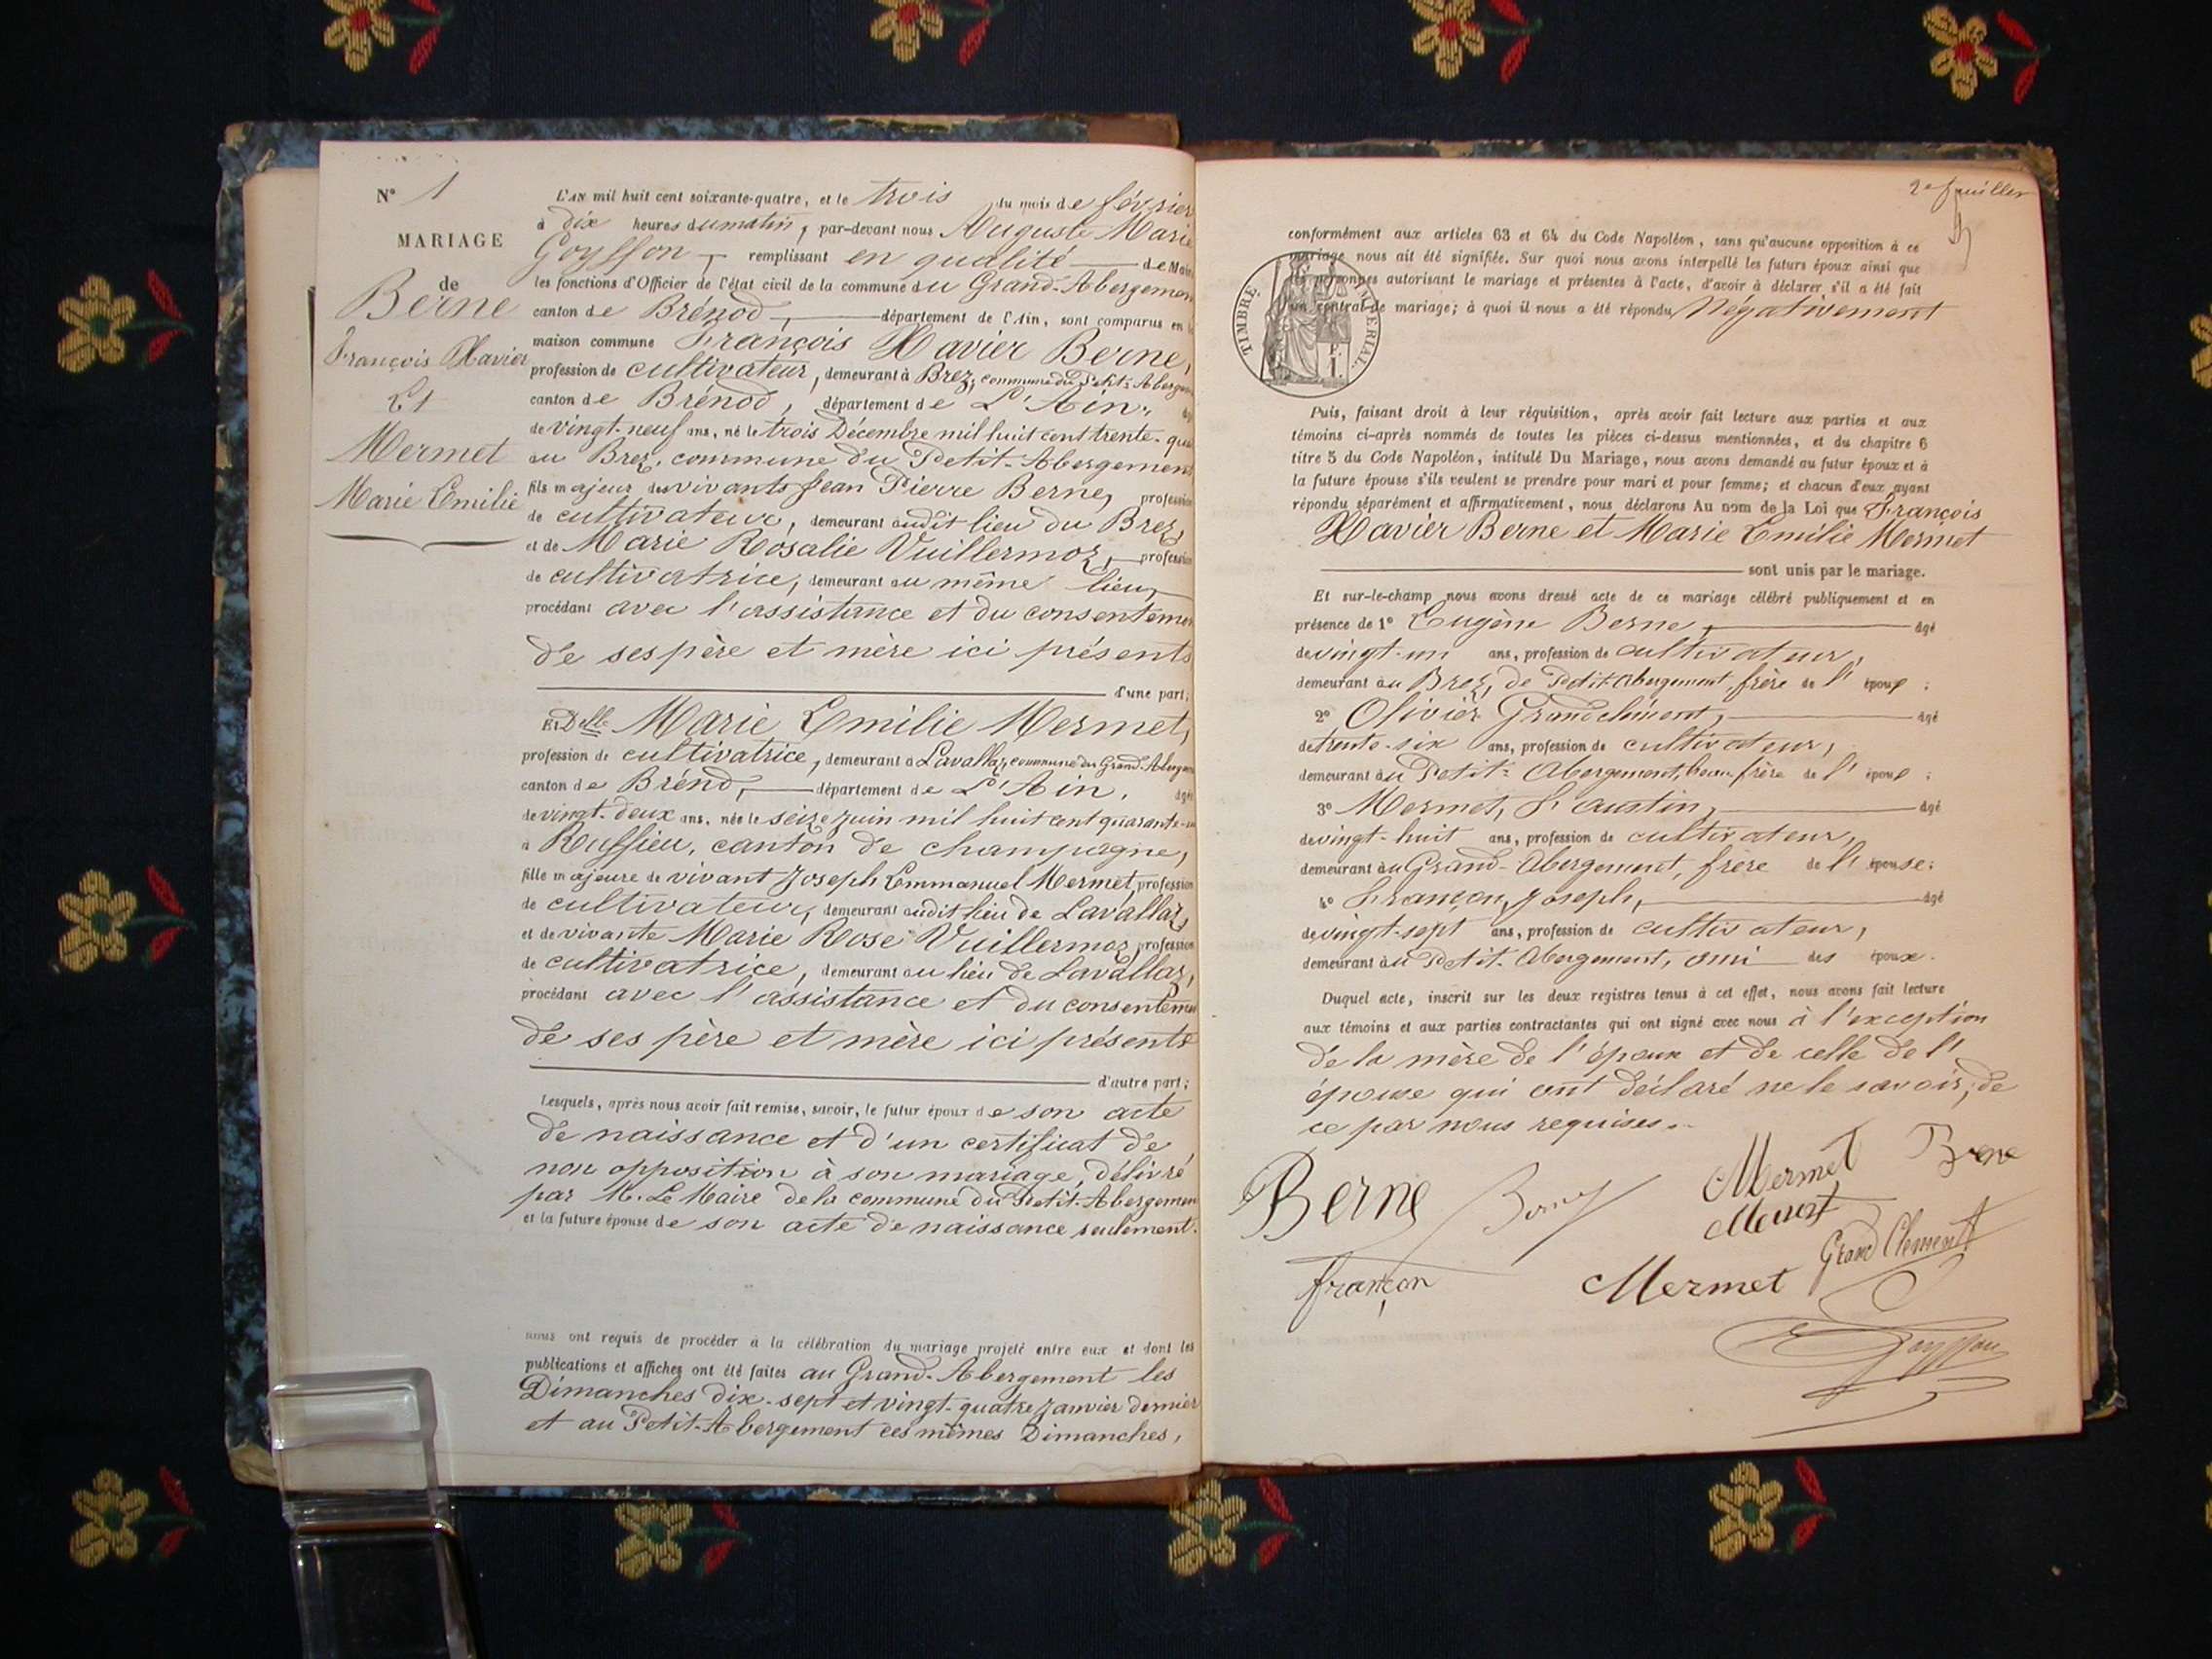 N° 1
MARIAGE
de
Berne
François Xavier
Et
Mermet
Marie Emilie
L'AN mil huit cent soixante-quatre, et le trois du mois de février
à dix heures du matin, par-devant nous Auguste Marie
Goyffon, remplissant en qualité de Maire
les fonctions d'Officier de l'état civil de la commune du Grand-Abergement
canton de Brénod, département de l'Ain, sont comparus en la
maison commune François Xavier Berne,
profession de cultivateur, demeurant à Brez, commune du Petit-Abergement
canton de Brénod, département de L'Ain, âgé
de vingt-neuf ans, né le trois Décembre mil huit cent trente-qua
au Brez, commune du Petit-Abergement
fils majeur des vivants Jean Pierre Berne, profession
de cultivateur, demeurant audit lieu du Brez,
et de Marie Rosalie Vuillermoz, profession
de cultivatrice, demeurant au même lieu,
procédant avec l'assistance et du consentemen
de ses père et mère ici présents
d'une part;
Et Delle Marie Emilie Mermet,
profession de cultivatrice, demeurant à Lavallaz, commune du Grand-Abergem
canton de Brénd, département de L'Ain, âgée
de vingt-deux ans, née le seize juin mil huit cent quarante-un
à Ruffieu, canton de champagne,
fille majeure de vivant Joseph Emmanuel Mermet, profession
de cultivateur, demeurant audit lieu de Lavallaz,
et de vivante Marie Rose Vuillermoz, profession
de cultivatrice, demeurant au lieu de Lavallaz,
procédant avec l'assistance et du consentemen
de ses père et mère ici présents
d'autre part;
Lesquels, après nous avoir fait remise, savoir, le futur époux de son acte
de naissance et d'un certificat de
non opposition à son mariage, délivré
par M. Le Maire de la commune du Petit-Abergemen
et la future épouse de son acte de naissance seulement.
nous ont requis de procéder à la célébration du mariage projeté entre eux et dont les
publications et affiches ont été faites au Grand-Abergement les
Dimanches dix-sept et vingt-quatre Janvier dernier
et au Petit-Abergement ces mêmes Dimanches,
2e feuillet
conformément aux articles 63 et 64 du Code Napoléon, sans qu'aucune opposition à ce
mariage nous ait été signifiée. Sur quoi nous avons interpellé les futurs époux ainsi que
les personnes autorisant le mariage et présentes à l'acte, d'avoir à déclarer s'il a été fait
un contrat de mariage; à quoi il nous a été répondu Négativement
TIMBRE IMPERIAL
F. 1.
Puis, faisant droit à leur réquisition, après avoir fait lecture aux parties et aux
témoins ci-après nommés de toutes les pièces ci-dessus mentionnées, et du chapitre 6
titre 5 du Code Napoléon, intitulé Du Mariage, nous avons demandé au futur époux et à
la future épouse s'ils veulent se prendre pour mari et pour femme; et chacun d'eux ayant
répondu séparément et affirmativement, nous déclarons Au nom de la Loi que François
Xavier Berne et Marie Emilie Mermet
sont unis par le mariage.
Et sur-le-champ nous avons dressé acte de ce mariage célébré publiquement et en
présence de 1° Eugène Berne, âgé
de vingt-un ans, profession de cultivateur,
demeurant au Brez, de Petit-Abergement, frère de l' époux;
2° Olivier Grandclément, âgé
de trente-six ans, profession de cultivateur,
demeurant au Petit-Abergement, beau-frère de l' époux;
3° Mermet, Faustin, âgé
de vingt-huit ans, profession de cultivateur,
demeurant au Grand-Abergement, frère de l' épouse;
4° Françon, Joseph, âgé
de vingt-sept ans, profession de cultivateur,
demeurant au Petit-Abergement, ami des époux.
Duquel acte, inscrit sur les deux registres tenus à cet effet, nous avons fait lecture
aux témoins et aux parties contractantes qui ont signé avec nous à l'exception
de la mère de l'époux et de celle de l'
épouse qui ont déclaré ne le savoir, de
ce par nous requises.
Berne Berne Mermet Berne
Mermet
Grand Clement
françon Mermet
Goyffon